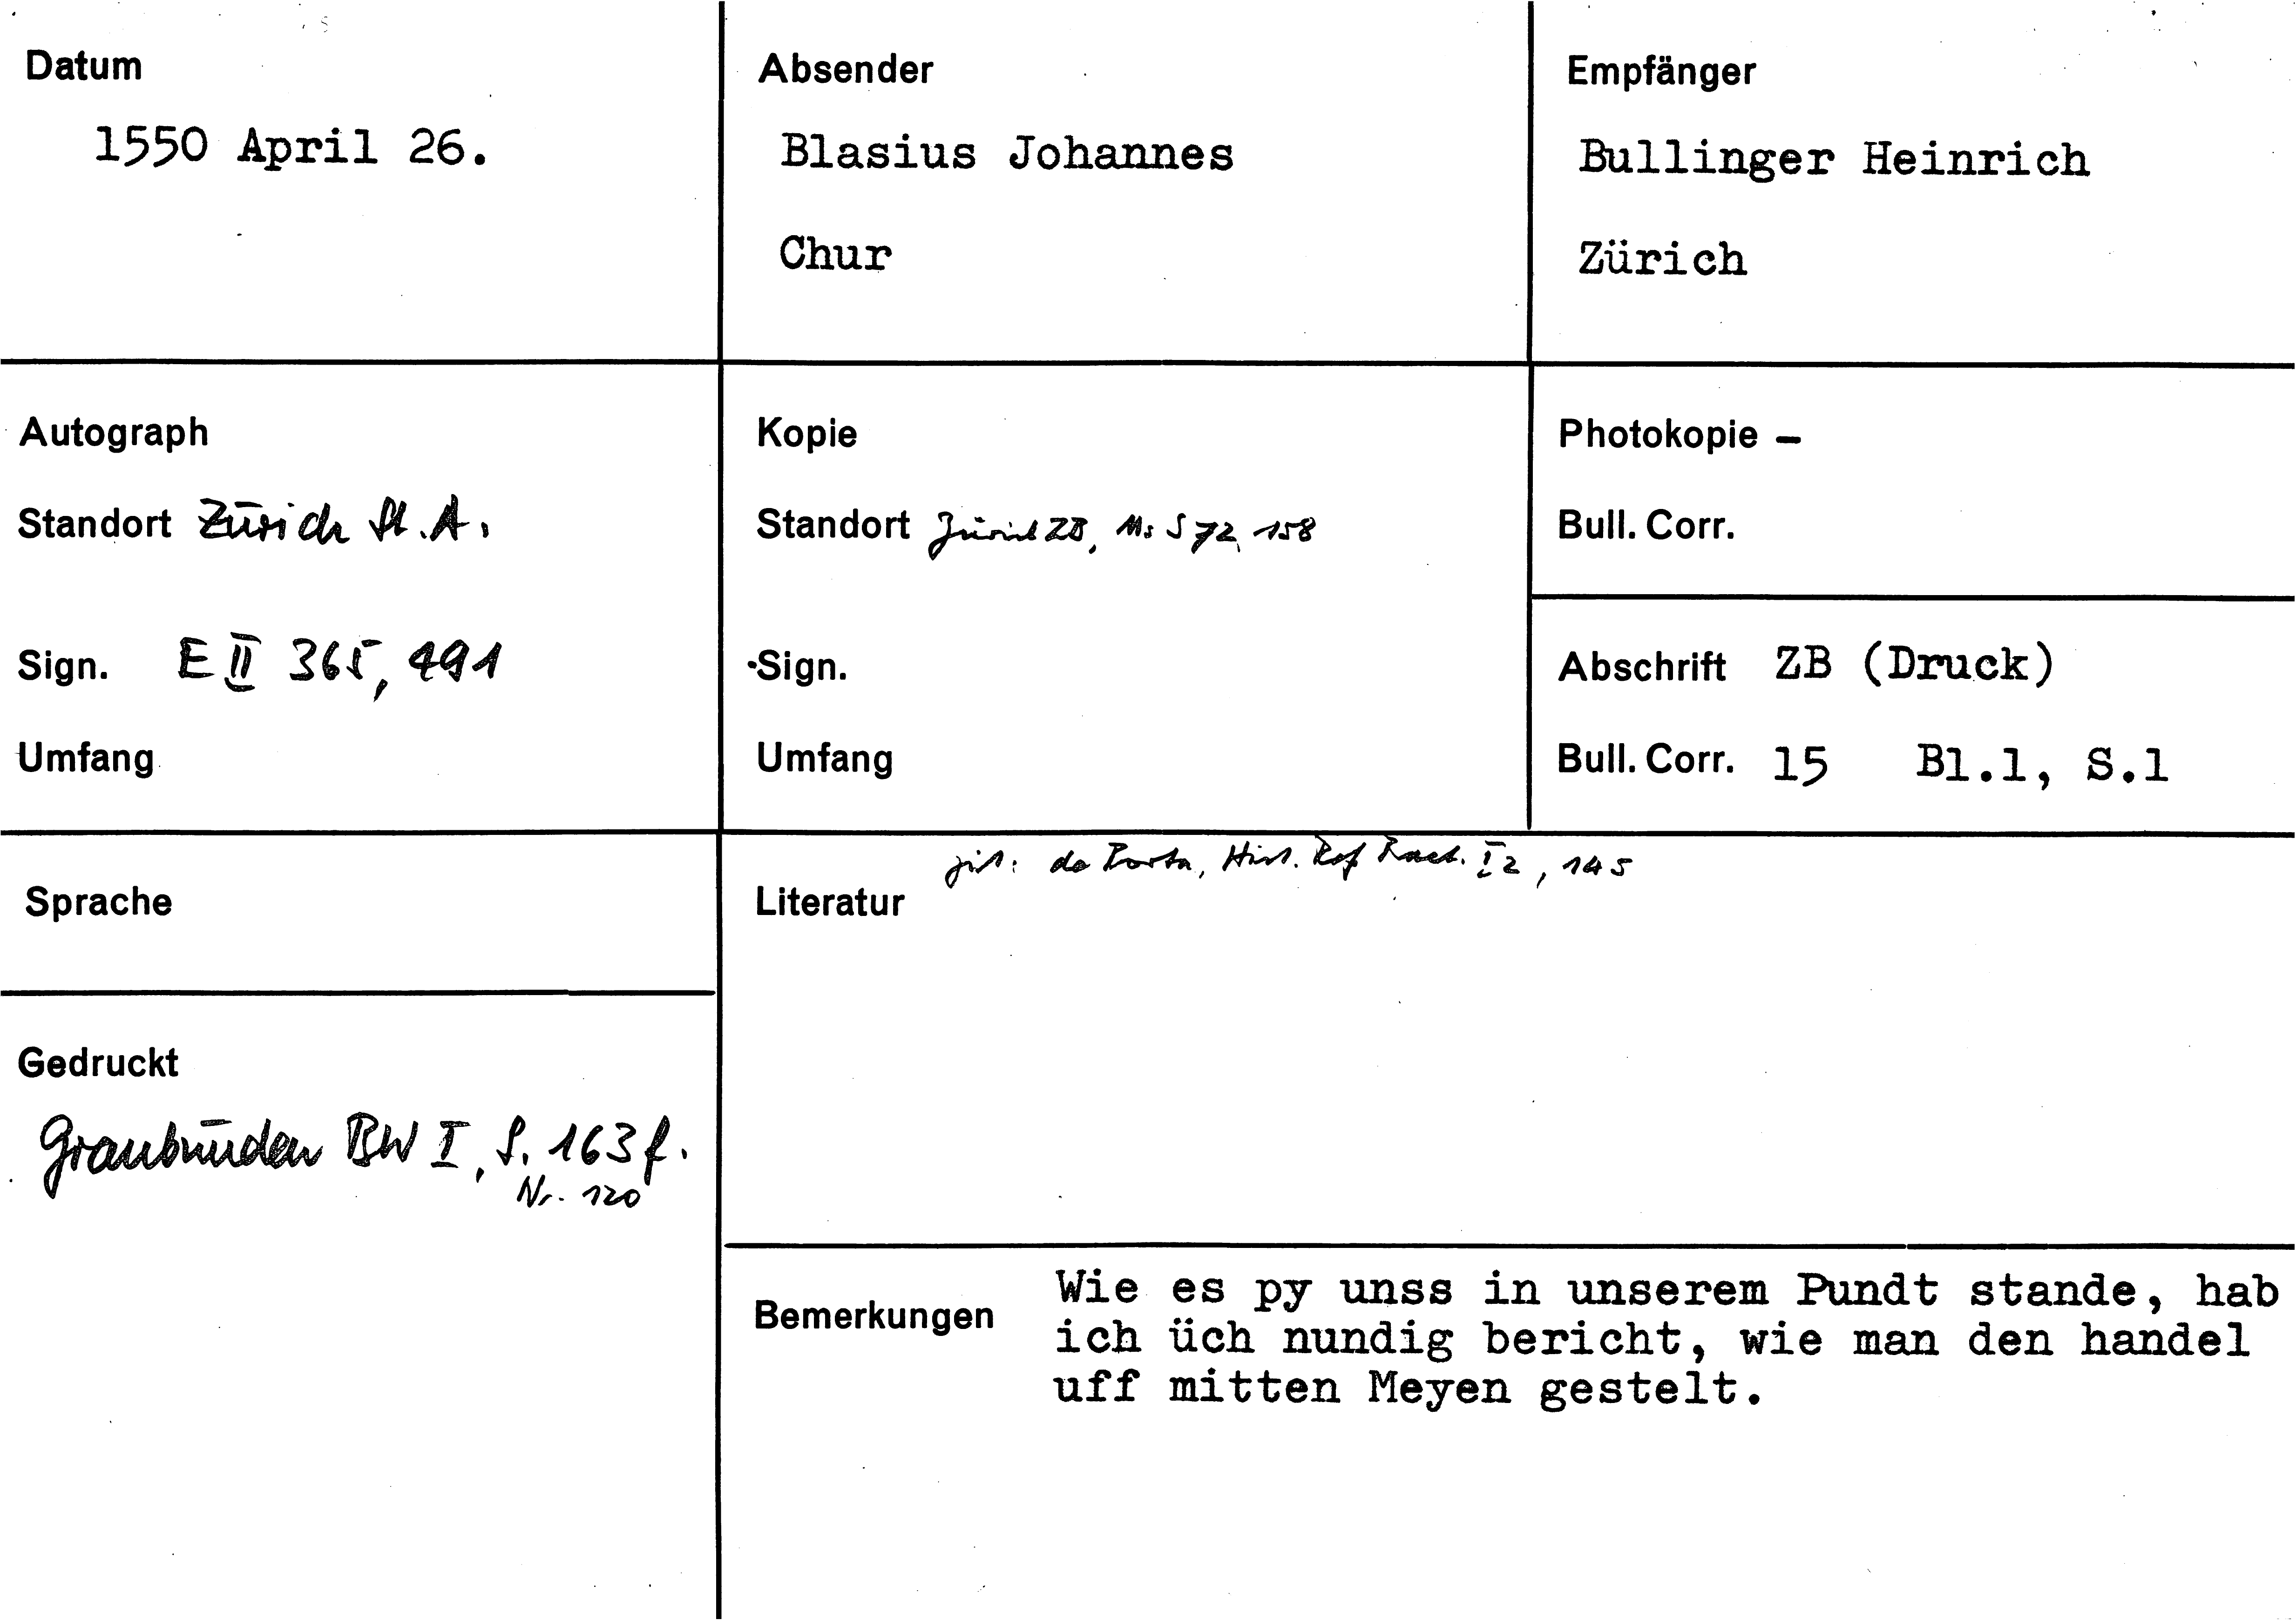 Datum
1550 April 26.
Absender
Blasius Johannes
Chur
Empfänger
Bullinger Heinrich
Zürich
Autograph
Standort Zürich St.A.
Sign. E II 365, 491
Umfang
Kopie
Standort Zürich ZB, Ms S 72, 158
Sign.
Umfang
Photokopie –
Bull. Corr.
Abschrift ZB (Druck)
Bull. Corr. 15 Bl.1, S.1
Sprache
Gedruckt
Graubünden BW I, S. 163 f.
Nr. 120
zit: de Porta, Hist. Ref Raet. I 2, 145
Literatur
Bemerkungen
Wie es py unss in unserem Pundt stande, hab
ich üch nundig bericht, wie man den handel
uff mitten Meyen gestelt.